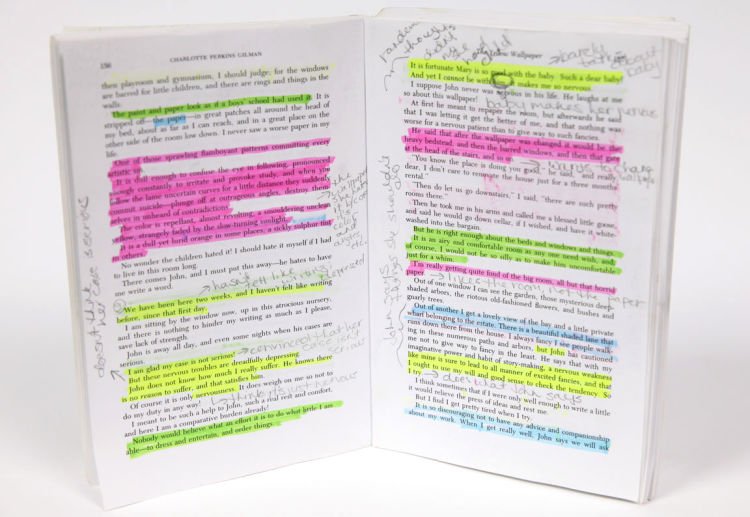 156 CHARLOTTE PERKINS GILMAN
then playroom and gymnasium, I should judge, for the windows
are barred for little children, and there are rings and things in the
walls.
The paint and paper look as if a boys' school had used it. It is
stripped off—the paper—in great patches all around the head of
my bed, about as far as I can reach, and in a great place on the
other side of the room low down. I never saw a worse paper in my
life.
One of those sprawling flamboyant patterns committing every
artistic sin.
It is dull enough to confuse the eye in following, pronounced
enough constantly to irritate and provoke study, and when you
follow the lame uncertain curves for a little distance they suddenly
commit suicide—plunge off at outrageous angles, destroy them
selves in unheard of contradictions.
The color is repellant, almost revolting, a smouldering unclean
yellow, strangely faded by the slow-turning sunlight.
It is a dull yet lurid orange in some places, a sickly sulphur tint
in others.
No wonder the children hated it! I should hate it myself if I had
to live in this room long.
There comes John, and I must put this away,—he hates to have
me write a word.
hasn't felt like writing
We have been here two weeks, and I haven't felt like writing
before, since that first day.
I am sitting by the window now, up in this atrocious nursery,
and there is nothing to hinder my writing as much as I please,
save lack of strength.
John is away all day, and even some nights when his cases are
serious.
I am glad my case is not serious! convinced that her
But these nervous troubles are dreadfully depressing.
John does not know how much I really suffer. He knows there
is no reason to suffer, and that satisfies him.
Of course it is only nervousness. It does weigh on me so not to
do my duty in any way!
I meant to be such a help to John, such a real rest and comfort,
and here I am a comparative burden already!
Nobody would believe what an effort it is to do what little I am
able—to dress and entertain, and order things.
doesn't think her case is serious
random thoughts
Yellow Wallpaper
barely talks about baby
It is fortunate Mary is so good with the baby. Such a dear baby!
And yet I cannot be with him, it makes me so nervous.
I suppose John never was nervous in his life. He laughs at me
so about this wallpaper! baby makes her nervous
At first he meant to repaper the room, but afterwards he said
that I was letting it get the better of me, and that nothing was
worse for a nervous patient than to give way to such fancies.
He said that after the wallpaper was changed it would be the
heavy bedstead, and then the barred windows, and then that gate
at the head of the stairs, and so on. wants to change wallpaper
"You know the place is doing you good," he said, "and really,
dear, I don't care to renovate the house just for a three months'
rental."
"Then do let us go downstairs," I said, "there are such pretty
rooms there."
Then he took me in his arms and called me a blessed little goose,
and said he would go down cellar, if I wished, and have it white-
washed into the bargain.
But he is right enough about the beds and windows and things.
It is an airy and comfortable room as any one need wish, and,
of course, I would not be so silly as to make him uncomfortable
just for a whim.
I'm really getting quite fond of the big room, all but that horrid
paper. likes the room but not the paper
Out of one window I can see the garden, those mysterious deep-
shaded arbors, the riotous old-fashioned flowers, and bushes and
gnarly trees.
Out of another I get a lovely view of the bay and a little private
wharf belonging to the estate. There is a beautiful shaded lane that
runs down there from the house. I always fancy I see people walk-
ing in these numerous paths and arbors, but John has cautioned
me not to give way to fancy in the least. He says that with my
imaginative power and habit of story-making, a nervous weakness
like mine is sure to lead to all manner of excited fancies, and that
I ought to use my will and good sense to check the tendency. So
I try. does what John says
I think sometimes that if I were only well enough to write a little
it would relieve the press of ideas and rest me.
But I find I get pretty tired when I try.
It is so discouraging not to have any advice and companionship
about my work. When I get really well, John says we will ask
John says things she should do